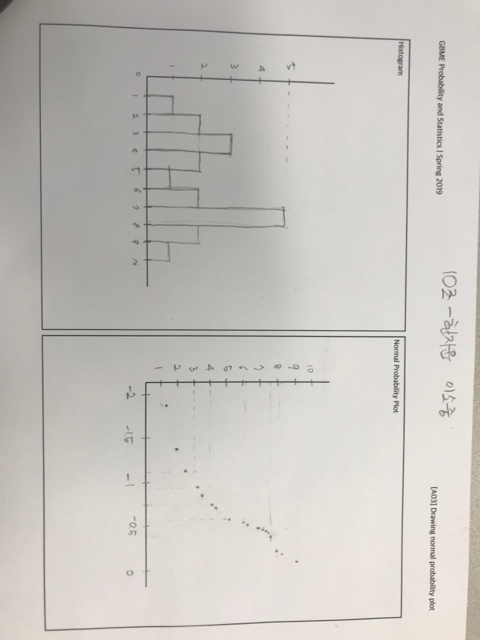 GBME Probability and Statistics | Spring 2019
[A03] Drawing normal probability plot
10조 -
Histogram
5
4
3
2
1
0 1 2 3 4 5 6 7 8 9 10
Normal Probability Plot
10
9
8
7
6
5
4
3
2
1
-2 -1.5 -1 -0.5 0